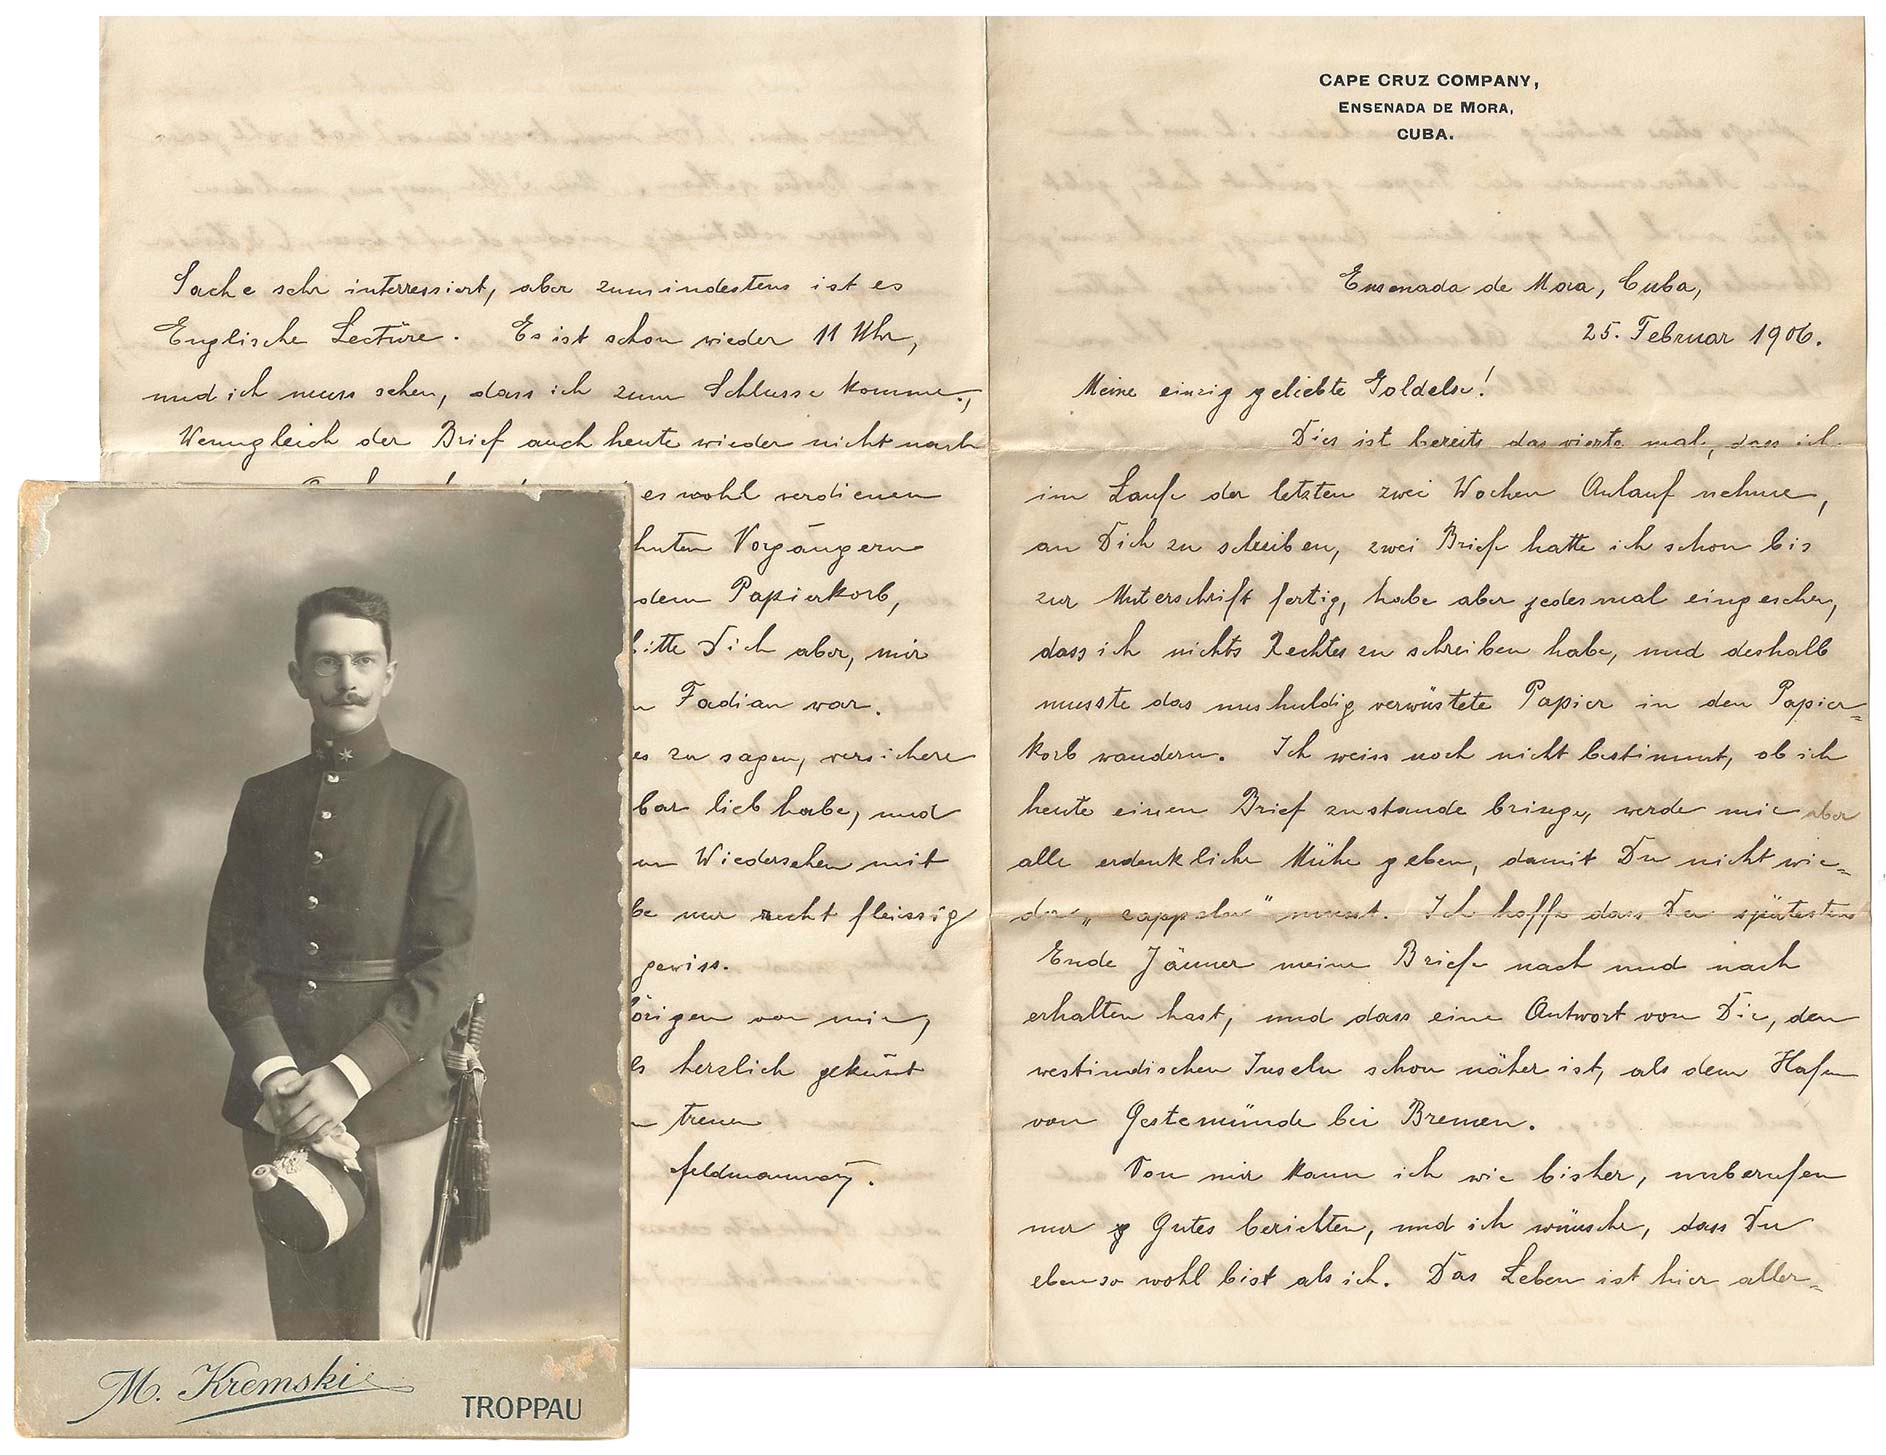 Sache sehr interressiert, aber zumindestens ist es
Englische Lectüre. Es ist schon wieder 11 Uhr,
und ich muss sehen, dass ich zum Schlusse komme.,
Wenngleich der Brief auch heute wieder nicht nach
es wohl verdienen
hnten Vorgängern
dem Papierkorb,
bitte Dich aber, mir
n Fadian war.
es zu sagen, versichere
bar lieb habe, und
en Wiedersehen mit
be nur recht fleissig
gewiss.
örigen von mir,
ls herzlich geküsst
n treuen
CAPE CRUZ COMPANY,
ENSENADA DE MORA,
CUBA.
Ensenada de Mora, Cuba,
25. Februar 1906.
Meine einzig geliebte Goldelse!
Dies ist bereits das vierte mal, dass ich
im Laufe der letzten zwei Wochen Anlauf nehme,
an Dich zu schreiben, zwei Briefe hatte ich schon bis
zur Unterschrift fertig, habe aber jedesmal eingesehen,
dass ich nichts Rechtes zu schreiben habe, und deshalb
musste das unschuldig verwüstete Papier in den Papier=
korb wandern. Ich weiss noch nicht bestimmt, ob ich
heute einen Brief zustande bringe, werde mir aber
alle erdenkliche Mühe geben, damit Du nicht wie=
der „zappeln" musst. Ich hoffe dass Du spätestens
Ende Jänner meine Briefe nach und nach
erhalten hast, und dass eine Antwort von Dir, den
westindischen Inseln schon näher ist, als dem Hafen
von Gestemünde bei Bremen.
Von mir kann ich wie bisher, unberufen
nur Gutes berichten, und ich wünsche, dass Du
ebenso wohl bist als ich. Das Leben ist hier aller=
M. Kremski
TROPPAU